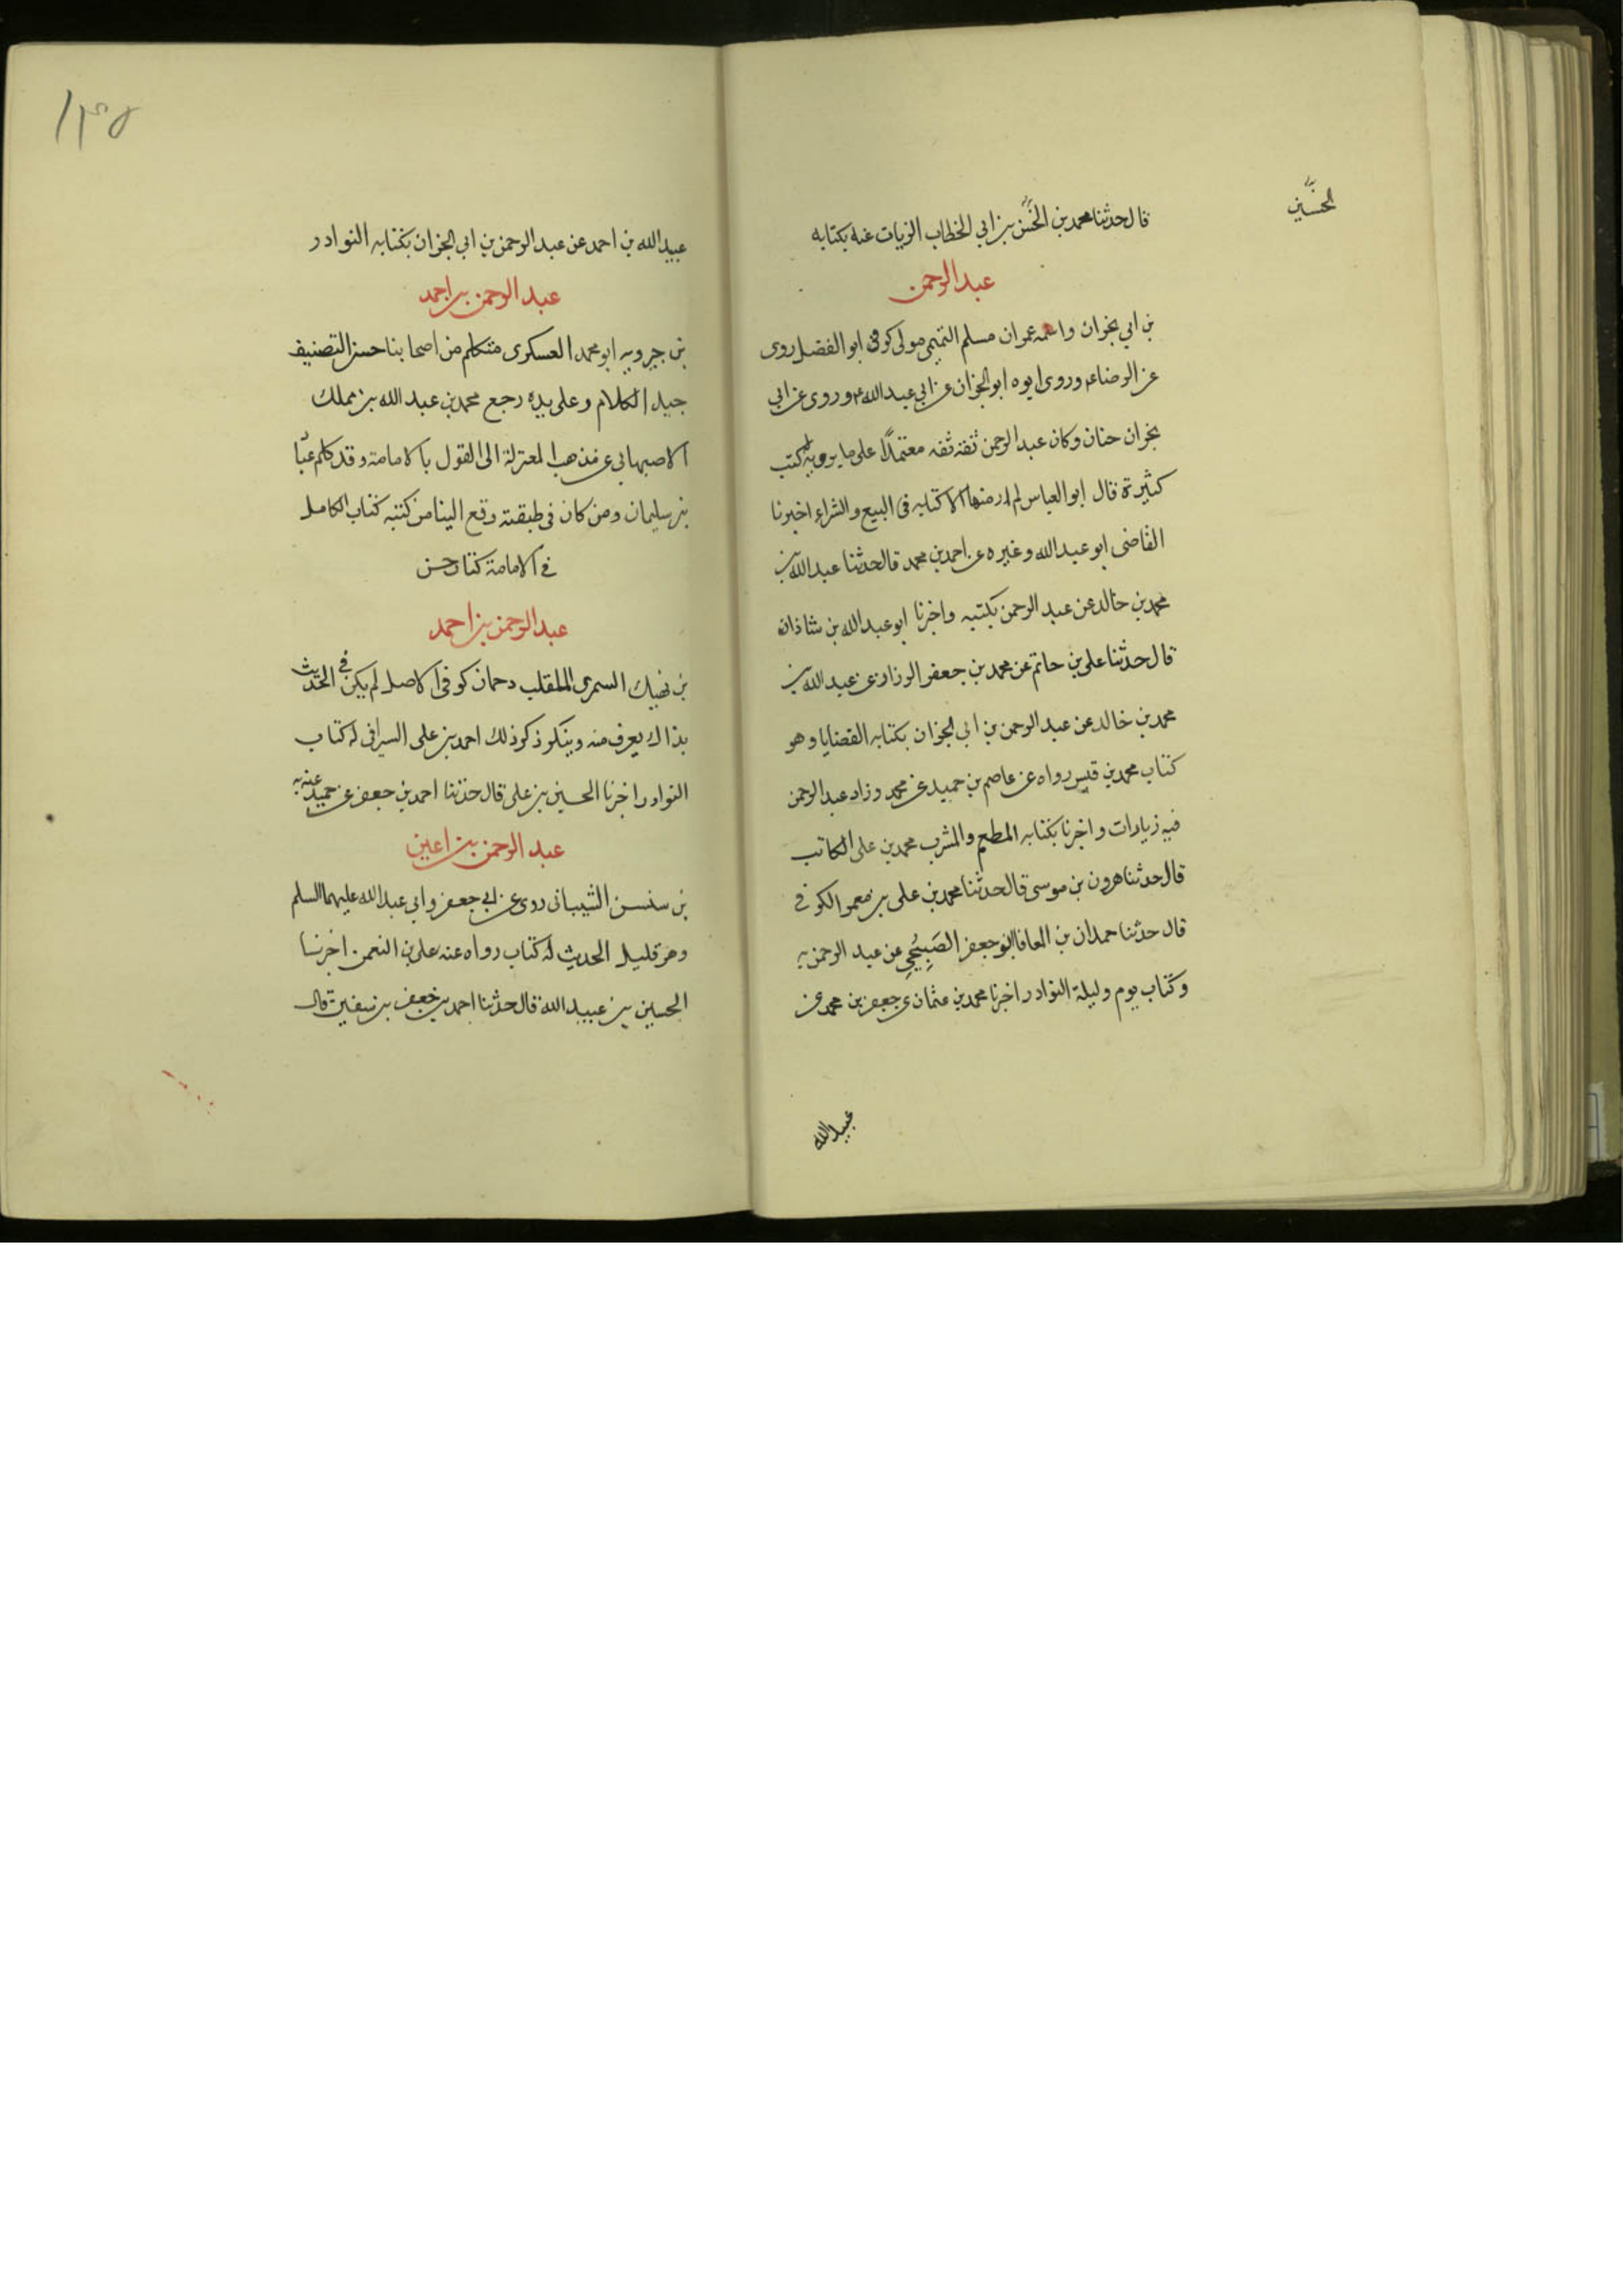 الحسين
قال حدثنا محمد بن الحسن بن ابي الخطاب الزيات عنه بكتابه
عبد الرحمن
بن ابي نجران واسمه عمران مسلم التميمي مولى كوفى ابو الفضل روى
عن الرضا ع وروى ابوه ابو نجران عن ابي عبد الله ع وروى عن ابي
نجران حنان وكان عبد الرحمن ثقة ثقة معتمدًا على ما يرويه له كتب
كثيرة قال ابو العباس لم ار منها الا كتابه فى البيع والشراء اخبرنا
القاضى ابو عبد الله وغيره عن احمد بن محمد قال حدثنا عبد الله بن
محمد بن خالد عن عبد الرحمن بكتبه واخبرنا ابو عبد الله بن شاذان
قال حدثنا على بن حاتم عن محمد بن جعفر الرزاز عن عبد الله بن
محمد بن خالد عن عبد الرحمن بن ابي نجران بكتابه القضايا وهو
كتاب محمد بن قيس رواه عن عاصم بن حميد عن محمد وزاد عبد الرحمن
فيه زيادات واخبرنا بكتابه المطعم والمشرب محمد بن على الكاتب
قال حدثنا هرون بن موسى قال حدثنا محمد بن على بن معمر الكوفي
قال حدثنا حمدان بن المعافا ابو جعفر الصَبِيُحي عن عبد الرحمن به
وكتاب يوم وليلة النوادر اخبرنا محمد بن عثمان عن جعفر بن محمد عن
عبيد الله
١٣٥
عبيد الله بن احمد عن عبد الرحمن بن ابي نجران بكتابه النوادر
عبد الرحمن بن احمد
بن جبرويه ابو محمد العسكرى متكلم من اصحابنا حسن التصنيف
جيد الكلام وعلى يده رجع محمد بن عبد الله بن مملك
الاصبهاني عن مذهب المعتزلة الى القول بالامامة وقد كلم عبّا
بن سليمان ومن كان فى طبقته وقع الينا من كتبه كتاب الكامل
في الامامة كتاب حسن
عبد الرحمن بن احمد
بن نهيك السمرى الملقلب دحمان كوفى الاصل لم يكن في الحديث
بذاك يعرف منه وينكر ذكر ذلك احمد بن على السيرافى له كتاب
النوادر اخبرنا الحسين بن على قال حدثنا احمد بن جعفر عن حميد عنه به
عبد الرحمن بن اعين
بن سنسن الشيبانى روى عن ابي جعفر وابي عبد الله عليهما السلم
وهو قليل الحديث له كتاب رواه عنه على بن النعمن. اخبرنا
الحسين بن عبيد الله قال حدثنا احمد بن جعفر بن سفين قال